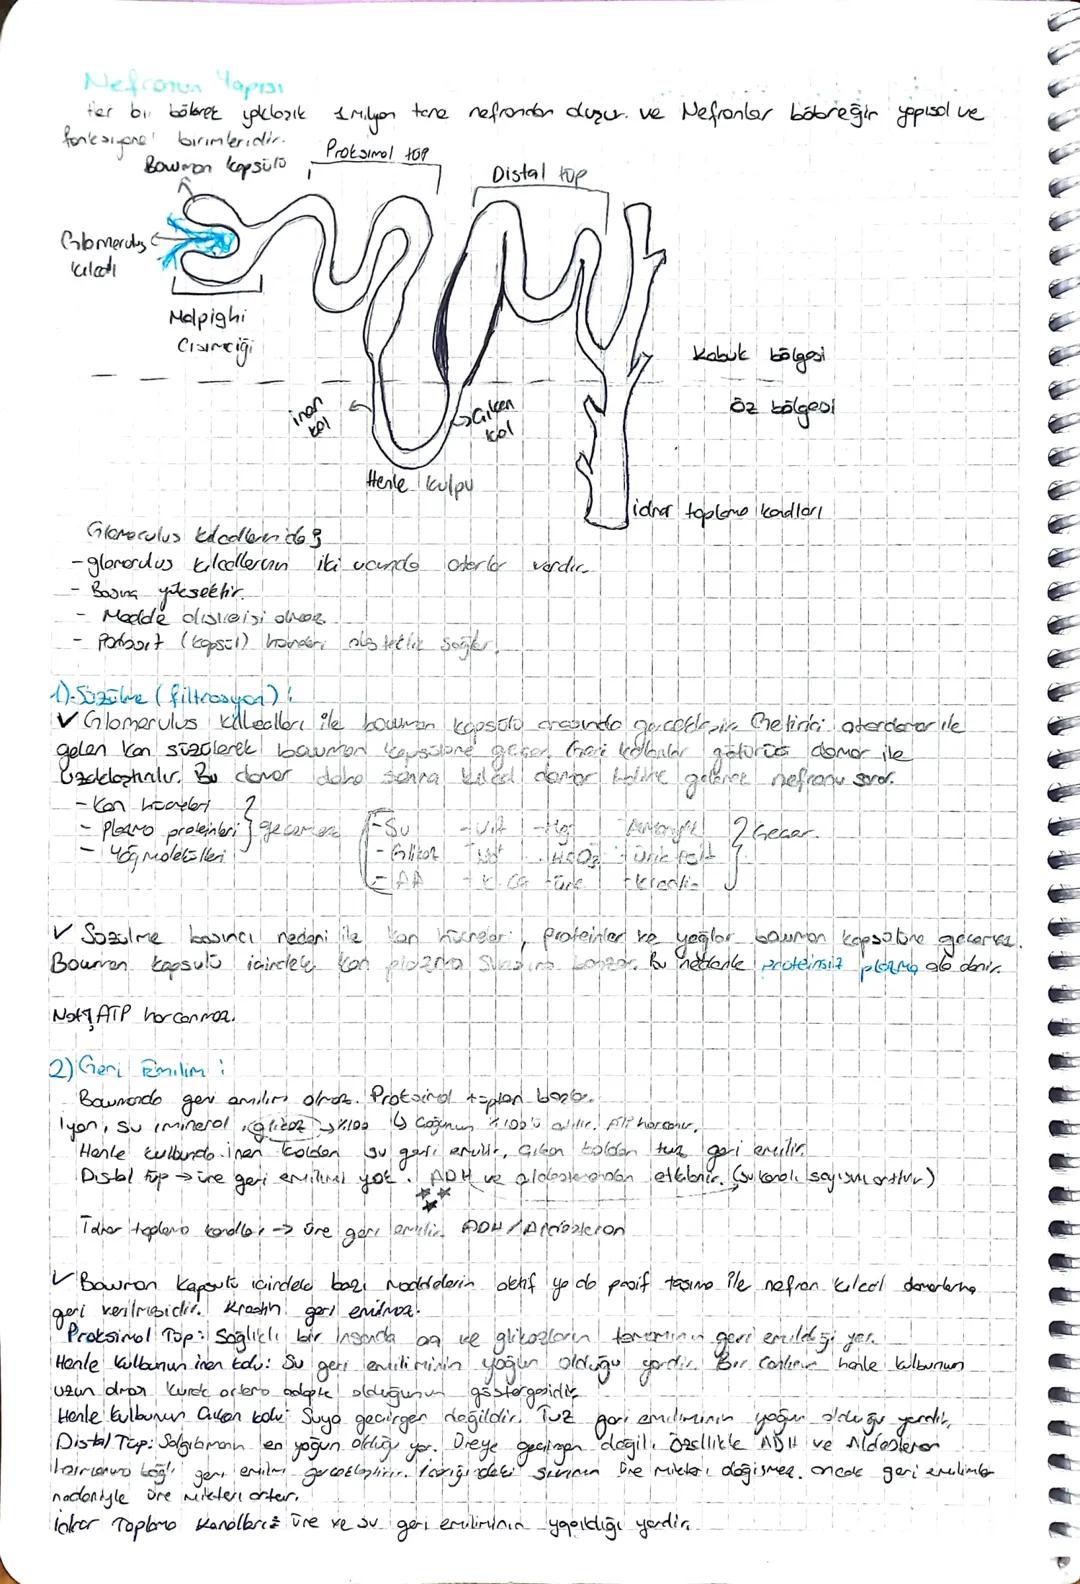 Nefronun Yapısı
Her bir böbrek yaklaşık 1 milyon tane nefrondan oluşur. ve Nefronlar böbreğin yapısal ve
fonksiyonel birimleridir.
Bowman kapsülü
Proksimal tüp
Distal tüp
Glomerulus
kılcalı
Malpighi
Cisimciği
Kabuk bölgesi
Öz bölgesi
inen
kol
Çıkan
kol
Henle kulpu
idrar toplama kanalları
Glomerulus kılcallarında;
- glomerulus kılcallarının iki ucunda atarlar vardır.
- Basınç yüksektir.
- Madde alışverişi olmaz.
- (kapsül)
1)- Süzülme (filtrasyon):
✓ Glomerulus kılcalları ile bowman kapsülü arasında gerçekleşir. Getirici atardamar ile
gelen kan süzülerek bowman kapsülüne geçer. Geri kalanlar götürücü damar ile
uzaklaştırılır. Bu damar daha sonra kılcal damar haline gelerek nefronu sarar.
- Kan hücreleri
- Plazma proteinleri } geçemez
- Yağ molekülleri
- Su - Vit Amonyak } Geçer.
- Glikoz Na⁺ ürik asit
- AA + K Ca + üre + kreatin
✓ Süzülme basıncı nedeni ile kan hücreleri, proteinler ve yağlar bowman kapsülüne geçemez.
Bowman kapsülü içindeki kan plazma sıvısına benzer. Bu nedenle proteinsiz plazma da denir.
Not; ATP harcanmaz.
2) Geri Emilim:
Bowmanda geri emilim olmaz. Proksimal tüpten başlar.
İyon, su, mineral, glikoz → %100 ↳ Çoğunun %100'ü alınır. ATP harcanır.
Henle kulbunda inen koldan su geri emilir, çıkan koldan tuz geri emilir.
Distal tüp → üre geri emilimi yok. ADH ve aldosterondan etkilenir. (su kanalı sayısını artırır)
İdrar toplama kanalları → üre geri emilir. ADH / Aldosteron
✓ Bowman kapsülü içindeki bazı maddelerin aktif ya da pasif taşıma ile nefron kılcal damarlarına
geri verilmesidir. Kreatin geri emilmez.
Proksimal Tüp: Sağlıklı bir insanda aa ve glikozların tamamının geri emildiği yer.
Henle kulbunun inen kolu: Su geri emiliminin yoğun olduğu yerdir. Bir canlının henle kulbunun
uzun olması kurak ortama adapte olduğunun göstergesidir.
Henle kulbunun Çıkan kolu: Suya geçirgen değildir. Tuz geri emiliminin yoğun olduğu yerdir.
Distal Tüp: Salgılamanın en yoğun olduğu yer. Üreye geçirgen değil. Özellikle ADH ve Aldosteron
hormonuna bağlı geri emilim gerçekleştirir. İçeriğindeki sıvının üre miktarı değişmez. ancak geri emilimler
nedeniyle üre miktarı artar.
idrar Toplama Kanalları: üre ve su geri emiliminin yapıldığı yerdir.